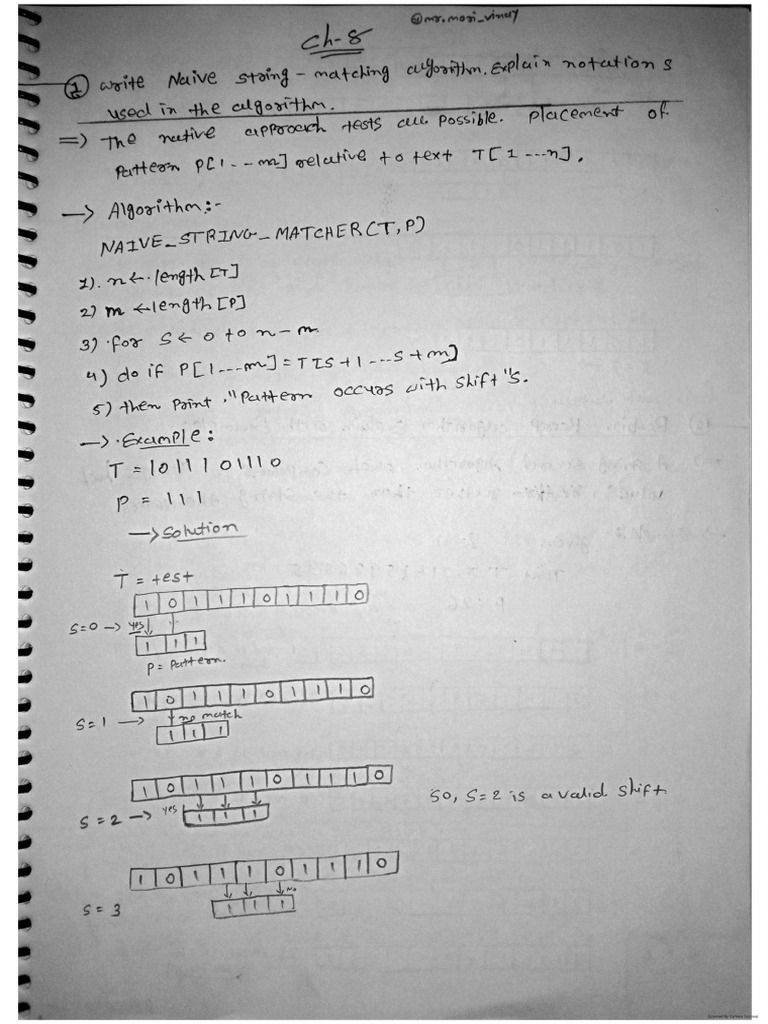 @mr.mori_vinay
Ch-8
① write Naive string-matching algorithm. Explain notations
used in the algorithm.
=> The native approach tests all possible. Placement of
Pattern P[1---m] relative to text T[1---n].
-> Algorithm:-
NAIVE_STRING_MATCHER(T,P)
1). n<-.length[T]
2) m <-length[P]
3) .for S<-0 to n-m
4) do if P[1---m]=T[S+1---S+m]
5) then Print ."Pattern occurs with shift"s.
->.Example:
T = 1011101110
P = 111
->Solution
T = test
1 0 1 1 1 0 1 1 1 0
S=0 -> yes
1 1 1
P = Pattern.
1 0 1 1 1 0 1 1 1 0
S=1 -> no match
1 1 1
1 0 1 1 1 0 1 1 1 0
S=2 -> yes
1 1 1
So, S=2 is a valid shift
1 0 1 1 1 0 1 1 1 0
No
S=3
1 1 1